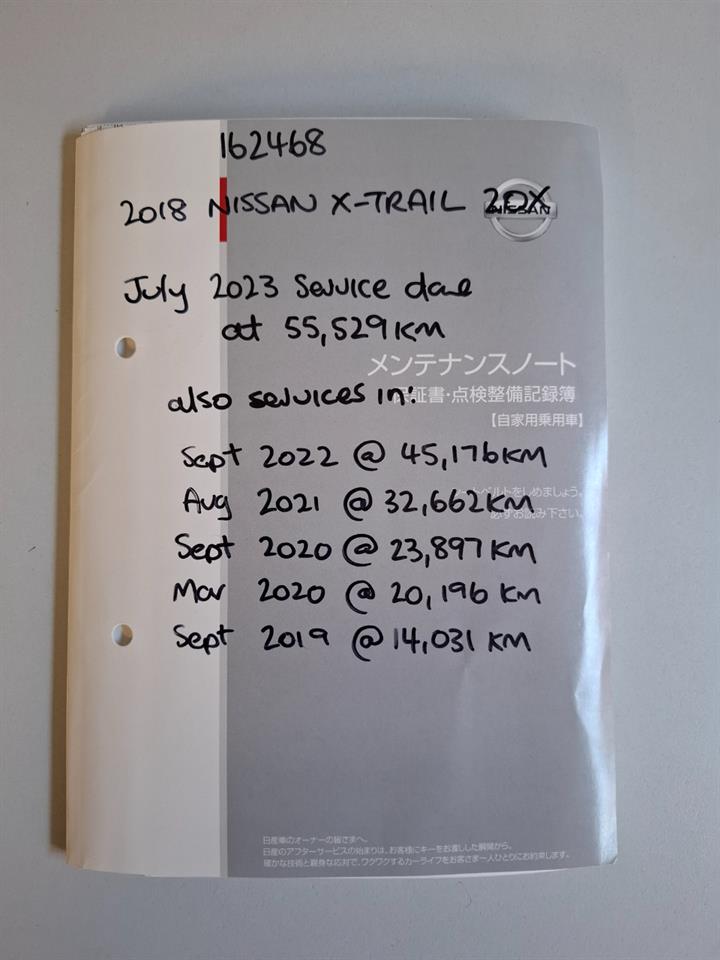 162468
2018 NISSAN X-TRAIL 20X
NISSAN
July 2023 Service done
at 55,529KM
メンテナンスノート
also services in:
保証書・点検整備記録簿
【自家用乗用車】
Sept 2022 @ 45,176KM
トベルトをしめましょう。
Aug 2021 @ 32,662KM
必ずお読み下さい。
Sept 2020 @ 23,897KM
Mar 2020 @ 20,196 KM
Sept 2019 @ 14,031 KM
日産車のオーナーの皆さまへ。
日産のアフターサービスの始まりは、お客様にキーをお渡しした瞬間から。
確かな技術と親身な応対で、ワクワクするカーライフをお客さま一人ひとりにお約束します。